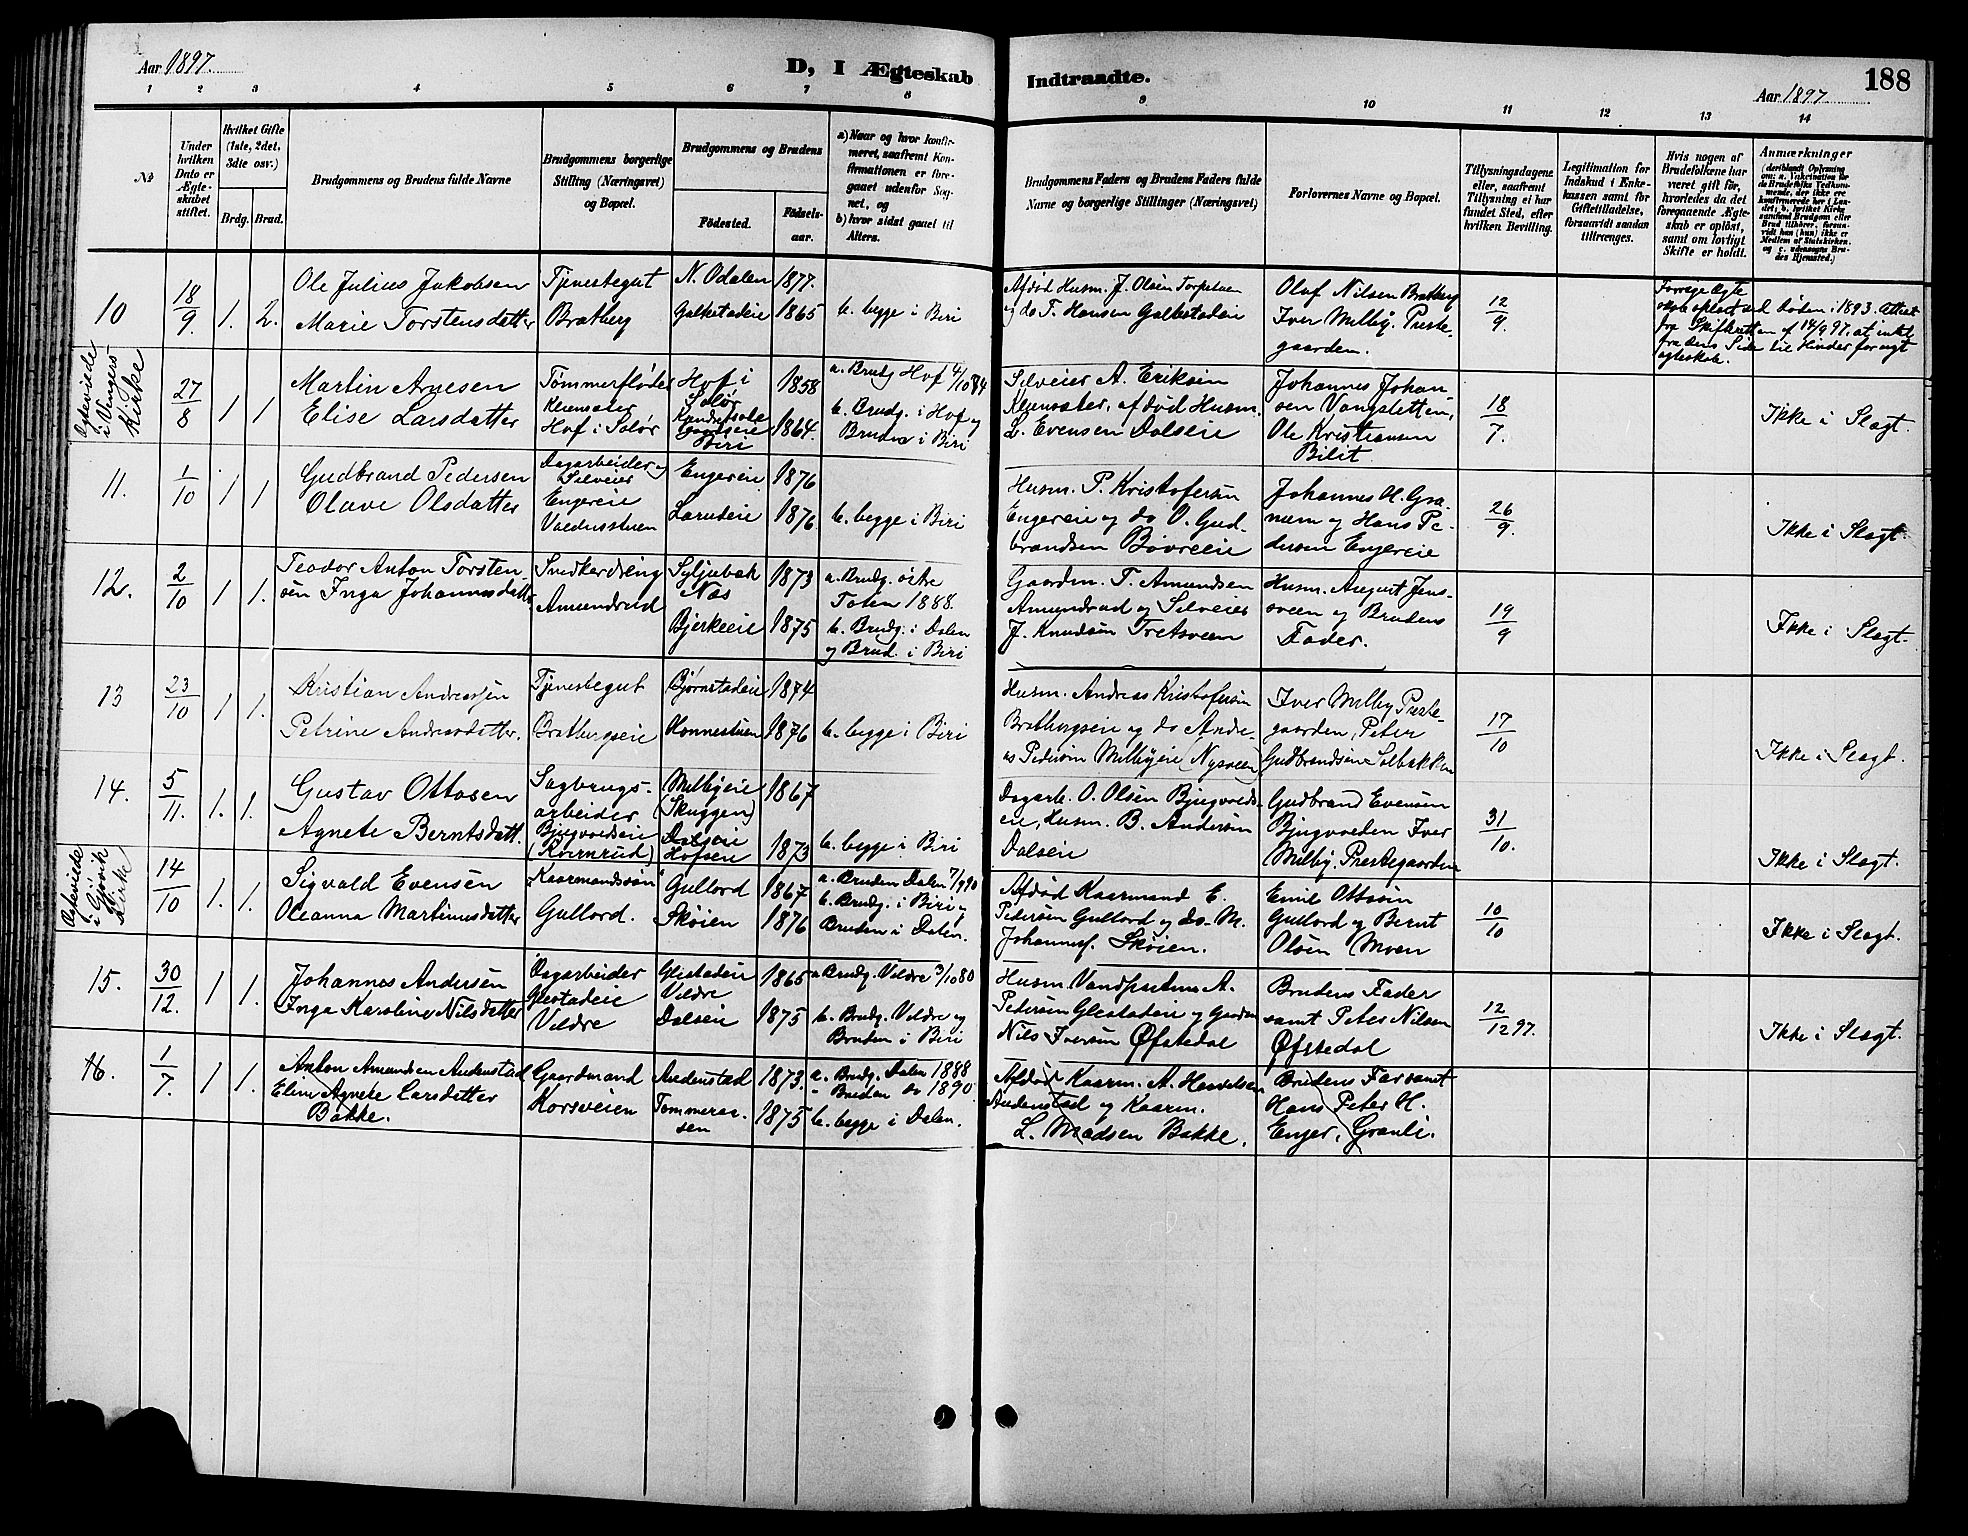 Aar 1897.
D, I Ægteskab
Indtraadte.
188
Aar 1897
1 2 3 4 5 6 7 8
9 10 11 12 13 14
№
Under hvilken Dato er Ægteskabet stiftet.
Hvilket Gifte (1ste, 2det, 3die osv.)
Brdg. Brud.
Brudgommens og Brudens fulde Navne
Brudgommens borgerlige Stilling (Næringsvei) og Bopæl.
Brudgommens og Brudens
Födested.
Födselsaar.
a) Naar og hvor konfirmeret, saafremt Konfirmationen er foregaaet udenfor Sognet, og
b) hvor sidst gaaet til Alters.
Brudgommens Faders og Brudens Faders fulde Navne og borgerlige Stillinger (Næringsvei)
Forlovernes Navne og Bopæl.
Tillysningsdagene eller, saafremt Tillysning ei har fundet Sted, efter hvilken Bevilling.
Legitimation for Indskud i Ænkekassen samt for Giftetilladelse, forsaavidt saadan tiltrænges.
Hvis nogen af Brudefolkene har været gift för, hvorledes da det foregaaende Ægteskab er oplöst, samt om lovligt Skifte er holdt.
Anmærkninger
10
18/9
1. 2.
Ole Julius Jakobsen
Marie Torstensdatter
Tjenestegut
Bratberg
N. Odalen
Galkestadeie
1877.
1865
b. begge i Biri
Afdød Husm. J. Olsen Torpstuen
og do T. Hansen Galkestadeie
Olaf Nilsen Bratberg
Iver Milby. Preste-
gaarden.
12/9.
Forrige Ægte
skab opløst ved døden i 1893. Attest
fra Skifteretten af 14/9 97. at intet
fra dens Side til Hinder for nyt
ægteskab.
Efterviede
i Vingers
Kirke
27/8
1 1
Martin Arnesen
Elise Larsdatter
Tømmerfløder
Kleensæter
Hof i Solør
Hof i
Solør
Biri
1858
1864.
a. Brudg Hof 4/10 84
b. Brudg. i Hof og
Bruden i Biri
Selveier A. Eriksen
Kleensæter, afdød Husm.
L. Evensen Dalseie
Johannes Johan-
sen Vangstetten,
Ole Kristiansen
Bilit.
18/7.
Ikke i Slagt.
11.
1/10
1 1
Gudbrand Pedersen
Olave Olsdatter
Dagarbeider og
Selveier
Engereie
Valdersstuen
Engereie
Larudeie
1876
1876.
b. begge i Biri
Husm. P. Kristofersen
Engereie og do O. Gud-
brandsen Bøvreeie
Johannes H. Gra-
num og Hans Pe-
dersen Engereie
26/9.
Ikke i Slagt.
12.
2/10
1 1.
Teodor Anton Torsten-
sen Inga Johannesdatter
Snedkerdreng
Amundrud
Syljubak
Næs
Bjerkeeie
1873
1875
a. Brudg. østre
Toten 1888.
b. Brudg. i Dalen
og Brud. i Biri
Gaardm. T. Amundsen
Amundrud og Selveier
J. Knudsen Tretsveen
Husm. August Jens-
sveen og Brudens
Fader.
19/9
Ikke i Slagt.
13
23/10
1 1.
Kristian Andreassen
Petrine Andreasdatter.
Tjenestegut
Bratbergseie
Bjørnstadeie
Honnestuen
1874
1876
b. begge i Biri
Husm. Andreas Kristofersen
Bratbergseie og do Andre-
as Pedersen Milbyeie (Nysveen)
Iver Milby Preste-
gaarden, Peter
Gudbrandsen Solbakken
17/10
Ikke i Slagt.
14.
5/11.
1. 1.
Gustav Ottosen
Agnete Berntsdatt.
Sagbrugs-
arbeider
Bjugvoldseie
(Kvernrud)
Milbyeie
(Skuggen)
Dalseie
Hofseie
1867
1873
b. begge i Biri
Dagarb. O. Olsen Bjugvolds-
eie, Husm. B. Andersen
Dalseie
Gudbrand Evensen
Bjugvolden Iver
Milby. Prestegaarden
31/10.
Ikke i Slagt.
Efterviede
i Gjøvik
Kirke
14/10
1. 1.
Sigvald Evensen
Oleanna Martinusdatter
Kaarmandssøn
Gullord.
Gullord
Skøien
1867
1876
a. Bruden Dalen 7/9 90
b. Brudg. i Biri og
Bruden i Dalen.
Afdød Kaarmand E.
Pedersen Gullord og do M.
Johannes. Skøien.
Emil Ottosen
Gullord og Bernt
Olsen Moen
10/10
Ikke i Slagt.
15.
30/12.
1 1.
Johannes Andersen
Inga Karoline Nilsdatter
Dagarbeider
Glestadeie
Veldre
Glestadeie
Veldre
Dalseie
1865
1875
a Brudg. Veldre 3/10 80
b. Brudg. Veldre og
Bruden i Biri
Husm. A.
Pedersen Glestadeie og Gaardm
Nils Iversen Øfstedal
Brudens Fader
samt Peter Nilsen
Øfstedal
12/12 97.
Ikke i Slagt.
16.
1/7.
1 1.
Anton Amundsen Audenstad
Elin Agnete Larsdatter
Bakke.
Gaardmand
Korsveien
Audenstad
Tommeraa-
sen
1873.
1875
a. Brudg. Dalen 1888
" Bruden do 1890
b. begge i Dalen.
Afdød Kaarm. A. Hovelsen
Audenstad og Kaarm.
L. Madsen Bakke.
Brudens Far samt
Hans Peter H.
Enger, Granli.